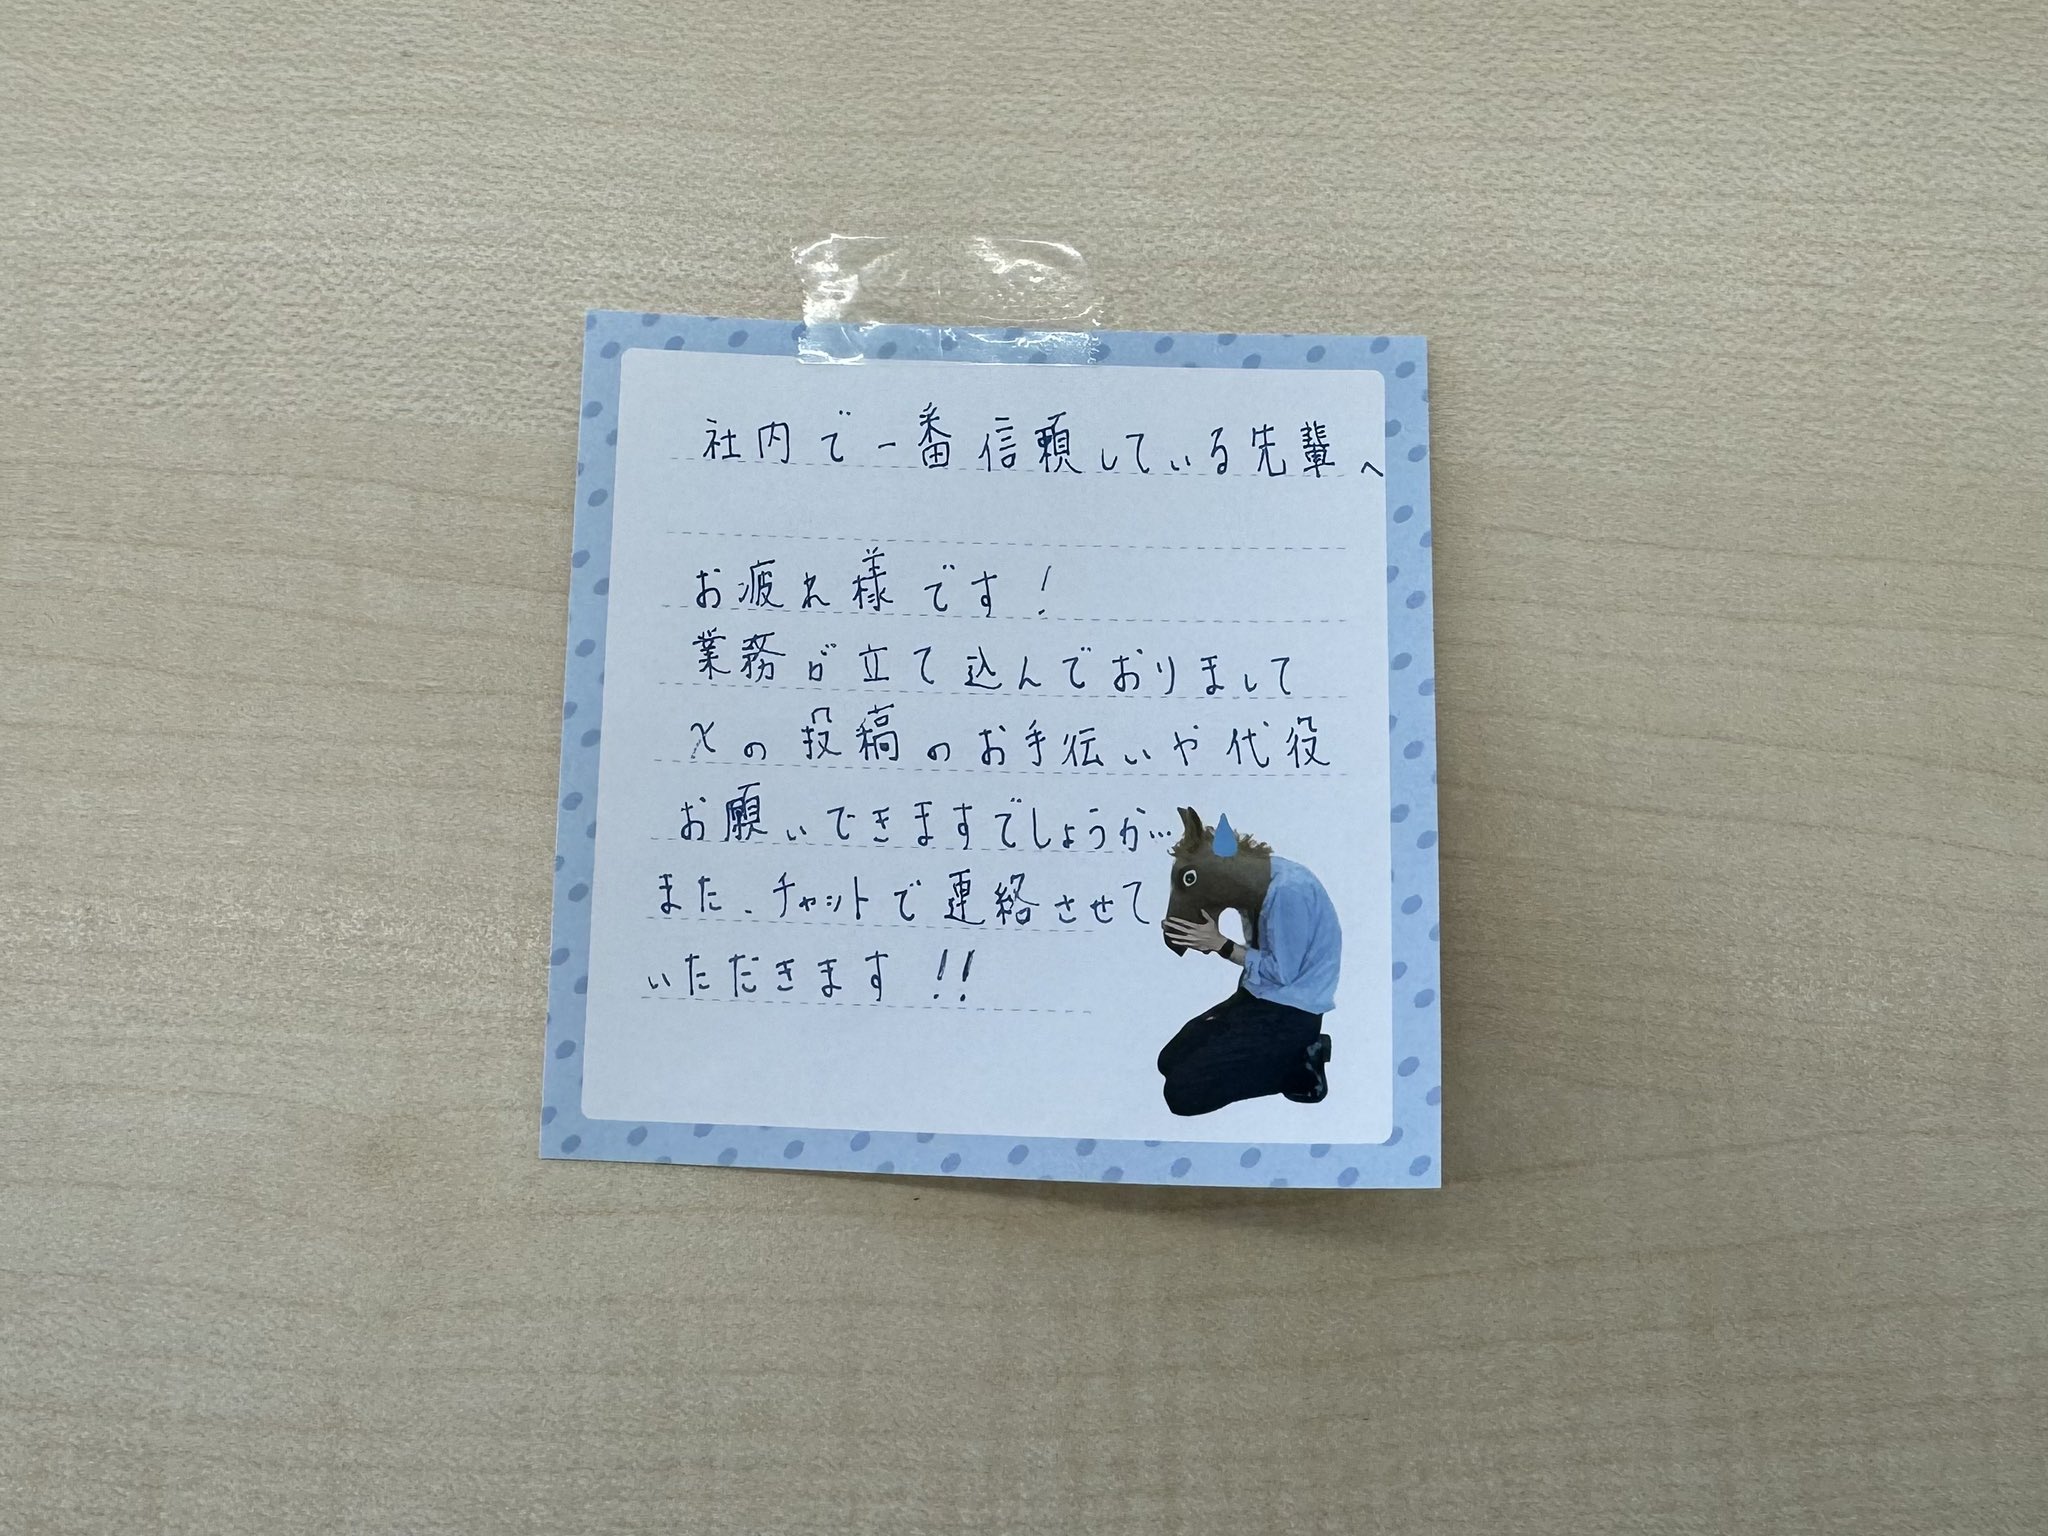 社内で一番信頼している先輩へ
お疲れ様です!
業務が立て込んでおりまして
Xの投稿のお手伝いや代役
お願いできますでしょうか…
また、チャットで連絡させて
いただきます!!